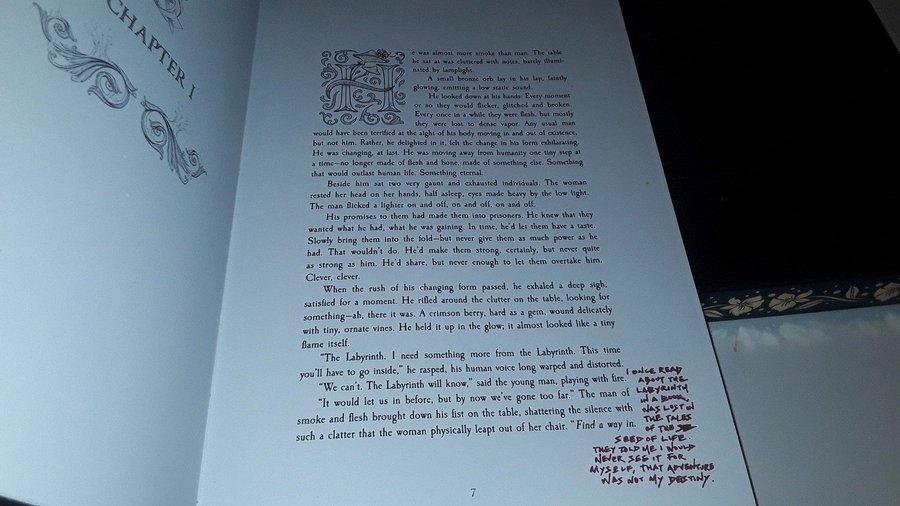 CHAPTER I
He was almost more smoke than man. The table
he sat at was cluttered with notes, barely illumi-
nated by lamplight.
A small bronze orb lay in his lap, faintly
glowing, emitting a low static sound.
He looked down at his hands: Every moment
or so they would flicker, glitched and broken.
Every once in a while they were flesh, but mostly
they were lost to dense vapor. Any usual man
would have been terrified at the sight of his body moving in and out of existence,
but not him. Rather, he delighted in it, felt the change in his form exhilarating.
He was changing, at last. He was moving away from humanity one tiny step at
a time—no longer made of flesh and bone, made of something else. Something
that would outlast human life. Something eternal.
Beside him sat two very gaunt and exhausted individuals. The woman
rested her head on her hands, half asleep, eyes made heavy by the low light.
The man flicked a lighter on and off, on and off, on and off.
His promises to them had made them into prisoners. He knew that they
wanted what he had, what he was gaining. In time, he'd let them have a taste.
Slowly bring them into the fold—but never give them as much power as he
had. That wouldn't do. He'd make them strong, certainly, but never quite
as strong as him. He'd share, but never enough to let them overtake him.
Clever, clever.
When the rush of his changing form passed, he exhaled a deep sigh,
satisfied for a moment. He rifled around the clutter on the table, looking for
something—ah, there it was. A crimson berry, hard as a gem, wound delicately
with tiny, ornate vines. He held it up in the glow; it almost looked like a tiny
flame itself.
"The Labyrinth. I need something more from the Labyrinth. This time
you'll have to go inside," he rasped, his human voice long warped and distorted.
"We can't. The Labyrinth will know," said the young man, playing with fire.
"It would let us in before, but by now we've gone too far." The man of
smoke and flesh brought down his fist on the table, shattering the silence with
such a clatter that the woman physically leapt out of her chair. "Find a way in.
I ONCE READ
ABOUT THE
LABYRINTH
IN A BOOK,
WAS LOST IN
THE TALES
OF THE
SEED OF LIFE.
THEY TOLD ME I WOULD
NEVER SEE IT FOR
MYSELF, THAT ADVENTURE
WAS NOT MY DESTINY.
7